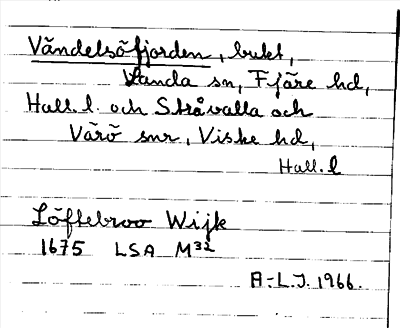 Vändelsöfjorden, bukt,
Landa sn, Fjäre hd,
Hall. l. och Stråvalla och
Värö snr, Viske hd,
Hall. l
Löftebroo Wijk
1675 LSA M32
A.-L.J. 1966.